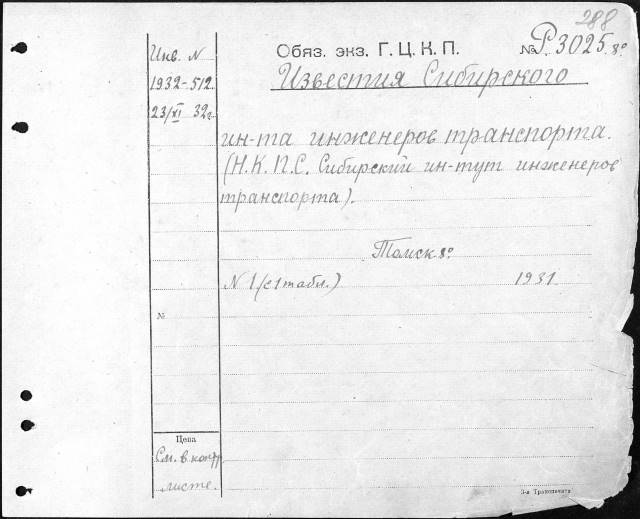 288
Инв. N
1932-512
23/XI 32г.
Обяз. экз. Г.Ц.К.П. № Р.3025. 8°
Известия Сибирского
ин-та инженеров транспорта.
(Н.К.П.С. Сибирский ин-тут инженеров
транспорта).
Томск 8°
N 1 (с 1 табл.) 1931
№
Цена
См. в контр.
листе.
3-я Транспечать